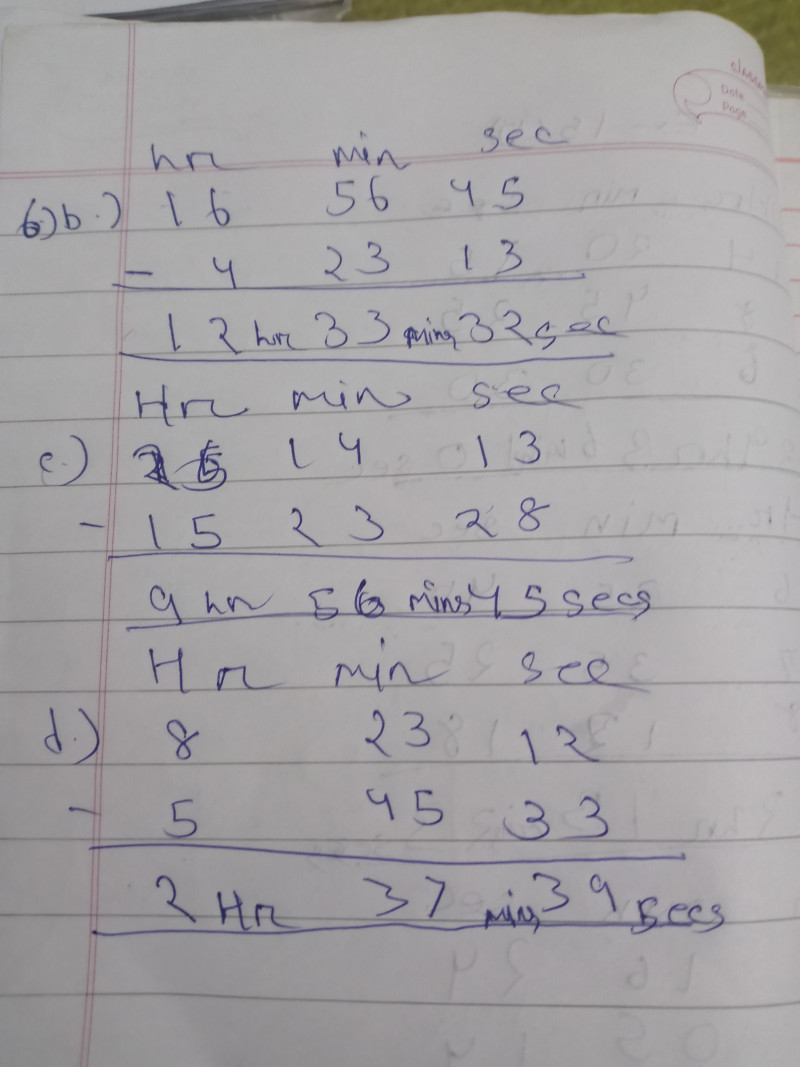 classmate
Date
Page
hr min sec
6)b.) 16 56 45
- 4 23 13
12 hr 33 mins 32 sec
Hr min sec
c.) 25 14 13
- 15 23 28
9 hr 56 mins 45 secs
Hr min sec
d.) 8 23 12
- 5 45 33
2 Hr 37 mins 39 secs